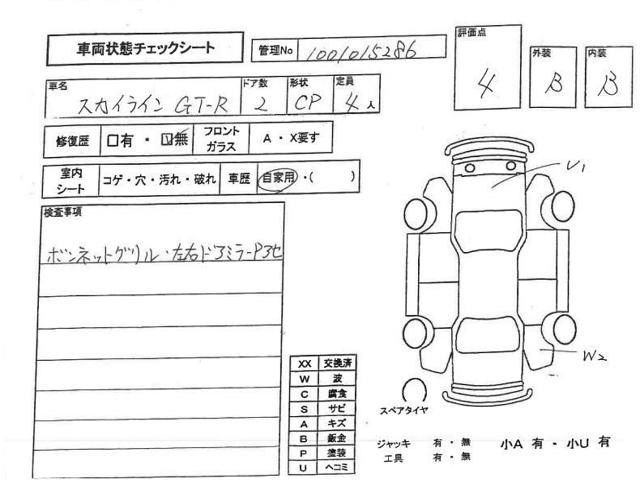 車両状態チェックシート 管理No 1001015286
評価点 4 外装 B 内装 B
車名 スカイライン GT-R ドア数 2 形状 CP 定員 4人
修復歴 □有・☑無 フロントガラス A・X要す
室内シート コゲ・穴・汚れ・破れ 車歴 自家用・( )
検査事項
ボンネットグリル・左右ドアミラーP3セ
U1
W2
XX 交換済
W 波
C 腐食
S サビ
A キズ
B 鈑金
P 塗装
U ヘコミ
スペアタイヤ
ジャッキ 有・無 小A 有・小U 有
工具 有・無